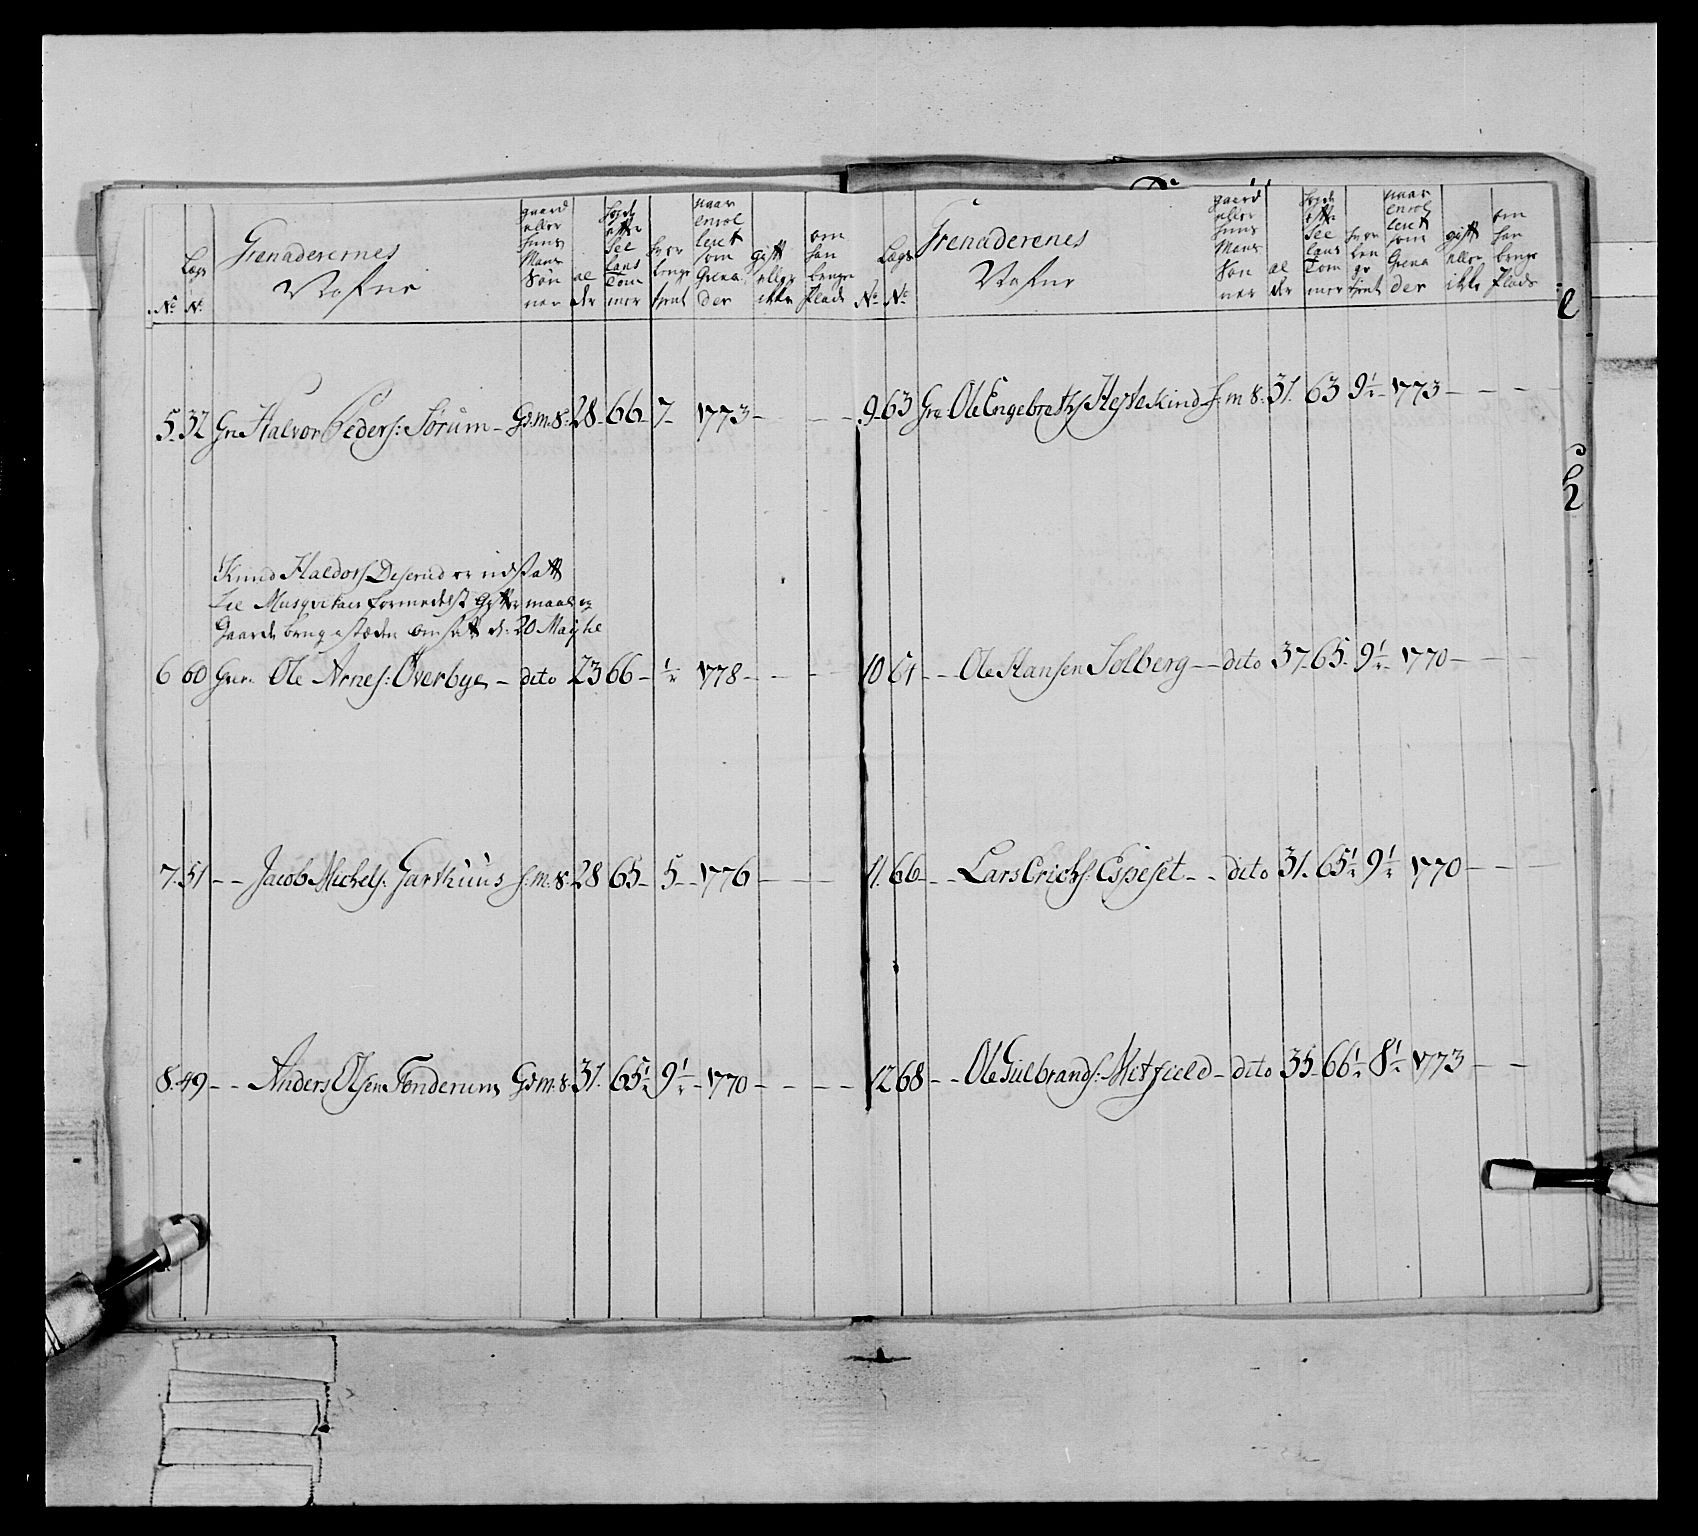 No. Lægs No. Grenaderernes Nafne gaard eller huus Mans Sønner alder Højde efter See lans Tommer hvor længe tjent naar enrolleret som Grenader gift eller ikke om han bruge Plads
5. 32 Gre Halvor Peders: Sørum - Gd: m: S: 28 - 66 - 7 - 1773 - - -
Knud Haldors Deserud er udsatt
til Musqvetair formedelst Gifftermaal og
Gaards brug istæden omsatt d: 20 Maij
6 60 Gren Ole Arnes: Overbye - dito 23 66 - ½ 1778 - - - -
7. 51 - - Jacob Michels: Garthuus h: m: S: 28 65 - 5 - - 1776 - - -
8. 49 - - Anders Olsen Tonderum Gd: m: S: 31. 65½ 9½ - 1770 - - - -
No. Lægs No. Grenaderenes Nafne gaard eller huus Mans Sønner alder Højde efter See lans Tommer hvor længe tjent naar enrolleret som Grenader gift eller ikke om han bruge Plads
9. 63 Gre Ole Engebreths Hesteskind h: m S. 31. 63 9½ - 1773 - - -
10 61 - - Ole Hansen Solberg - - dito 37 - 65 - 9½ - 1770 - - -
11. 66 - - Lars Erichs: Espeset - - dito 31. 65½ 9½ 1770 - - -
12 68 - - Ole Gulbrands: Mitfield - dito 35 - 66½ 8½ 1773 - -